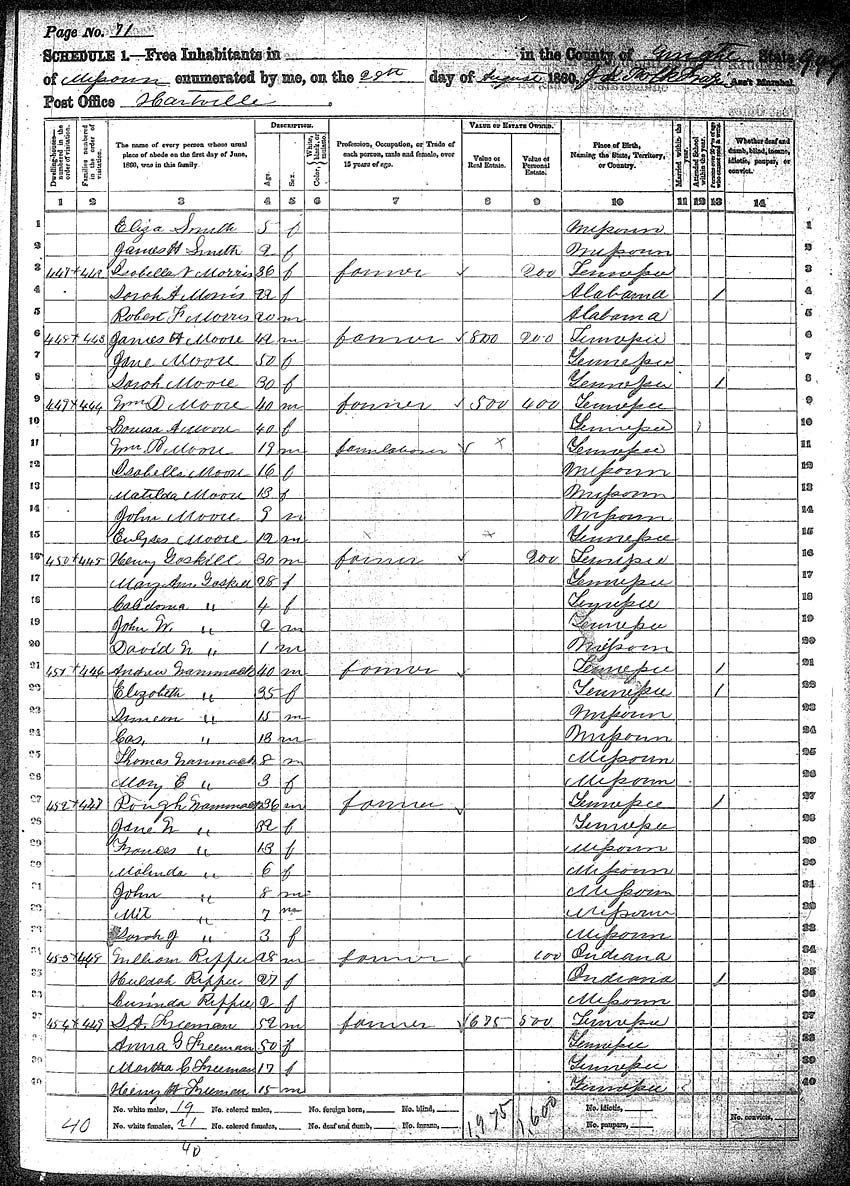 Page No. 71
SCHEDULE 1.—Free Inhabitants in in the County of Wright State
of Missouri enumerated by me, on the 28th day of August 1860. Ass't Marshal.
Post Office Hartville
Dwelling-houses—numbered in the order of visitation.
Families numbered in the order of visitation.
The name of every person whose usual place of abode on the first day of June, 1860, was in this family.
DESCRIPTION.
Age.
Sex.
Color, White, black, or mulatto.
Profession, Occupation, or Trade of each person, male and female, over 15 years of age.
VALUE OF ESTATE OWNED.
Value of Real Estate.
Value of Personal Estate.
Place of Birth, Naming the State, Territory, or Country.
Married within the year.
Attended School within the year.
Whether deaf and dumb, blind, insane, idiotic, pauper, or convict.
1 2 3 4 5 6 7 8 9 10 11 12 13 14
1 Eliza Smith 5 f Missouri 1
2 James H Smith 2 f Missouri 2
3 442 Isabella N Morris 36 f farmer 200 Tennessee 3
4 Sarah A Morris 22 f Alabama 1 4
5 Robert F Morris 20 m Alabama 5
6 448 443 James H Moore 49 m farmer 800 200 Tennessee 6
7 Jane Moore 50 f Tennessee 7
8 Sarah Moore 30 f Tennessee 1 8
9 449 444 Wm D Moore 40 m farmer 500 400 Tennessee 9
10 Louisa A Moore 40 f Tennessee 10
11 Wm B Moore 19 m farm laborer Tennessee 11
12 Isabella Moore 16 f Missouri 12
13 Matilda Moore 13 f Missouri 13
14 John Moore 9 m Missouri 14
15 Moore 12 m Tennessee 15
16 450 445 Henry Gaskill 30 m farmer 200 Tennessee 16
17 Mary Ann Gaskill 28 f Tennessee 17
18 Caledonia " 4 f Tennessee 18
19 John W. " 2 m Tennessee 19
20 David N " 1 m Missouri 20
21 451 446 Andrew 40 m farmer Tennessee 1 21
22 Elizabeth " 35 f Tennessee 1 22
23 Simeon " 15 m Missouri 23
24 " 13 m Missouri 24
25 Thomas 8 m Missouri 25
26 Mary E " 3 f Missouri 26
27 452 447 36 m farmer Tennessee 1 27
28 Jane " 32 f Tennessee 28
29 Frances " 13 f Missouri 29
30 Malinda " 6 f Missouri 30
31 John " 8 m Missouri 31
32 " 7 m Missouri 32
33 Sarah J " 3 f Missouri 33
34 453 448 William Rippee 28 m farmer 100 Indiana 34
35 Huldah Rippee 27 f Indiana 1 35
36 Rippee 2 f Missouri 36
37 454 449 Freeman 52 m farmer 675 500 Tennessee 37
38 Anna G Freeman 50 f Tennessee 38
39 Martha C Freeman 17 f Tennessee 39
40 Henry H Freeman 15 m Tennessee 40
40
No. white males, 19 No. colored males, No. foreign born, No. blind, 1,975 1,600 No. idiotic,
No. white females, 21 No. colored females, No. deaf and dumb, No. insane, No. paupers, No. convicts,
40